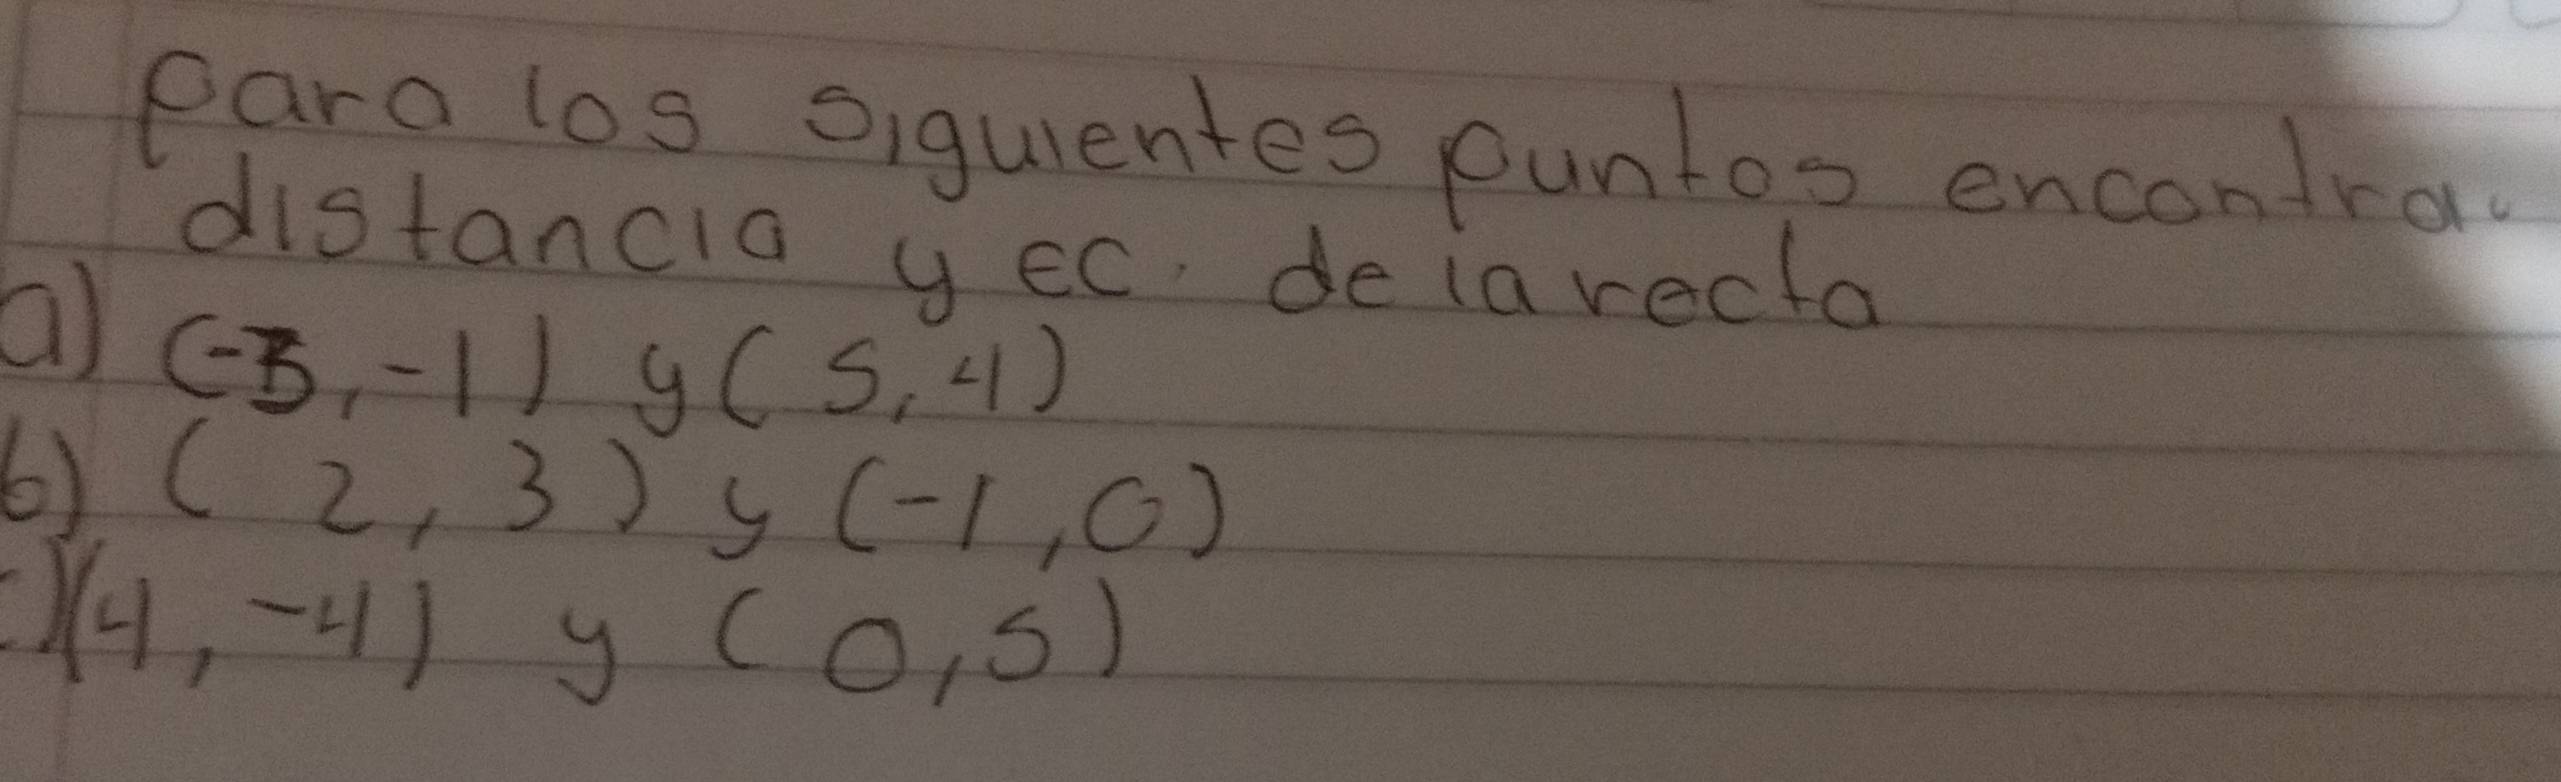 para los siguientes puntos encontrar
distancia y EC. de la recta
a) (-3, -1) y (5, 4)
b) (2, 3) y (-1, 0)
c) (4, -4) y (0, 5)